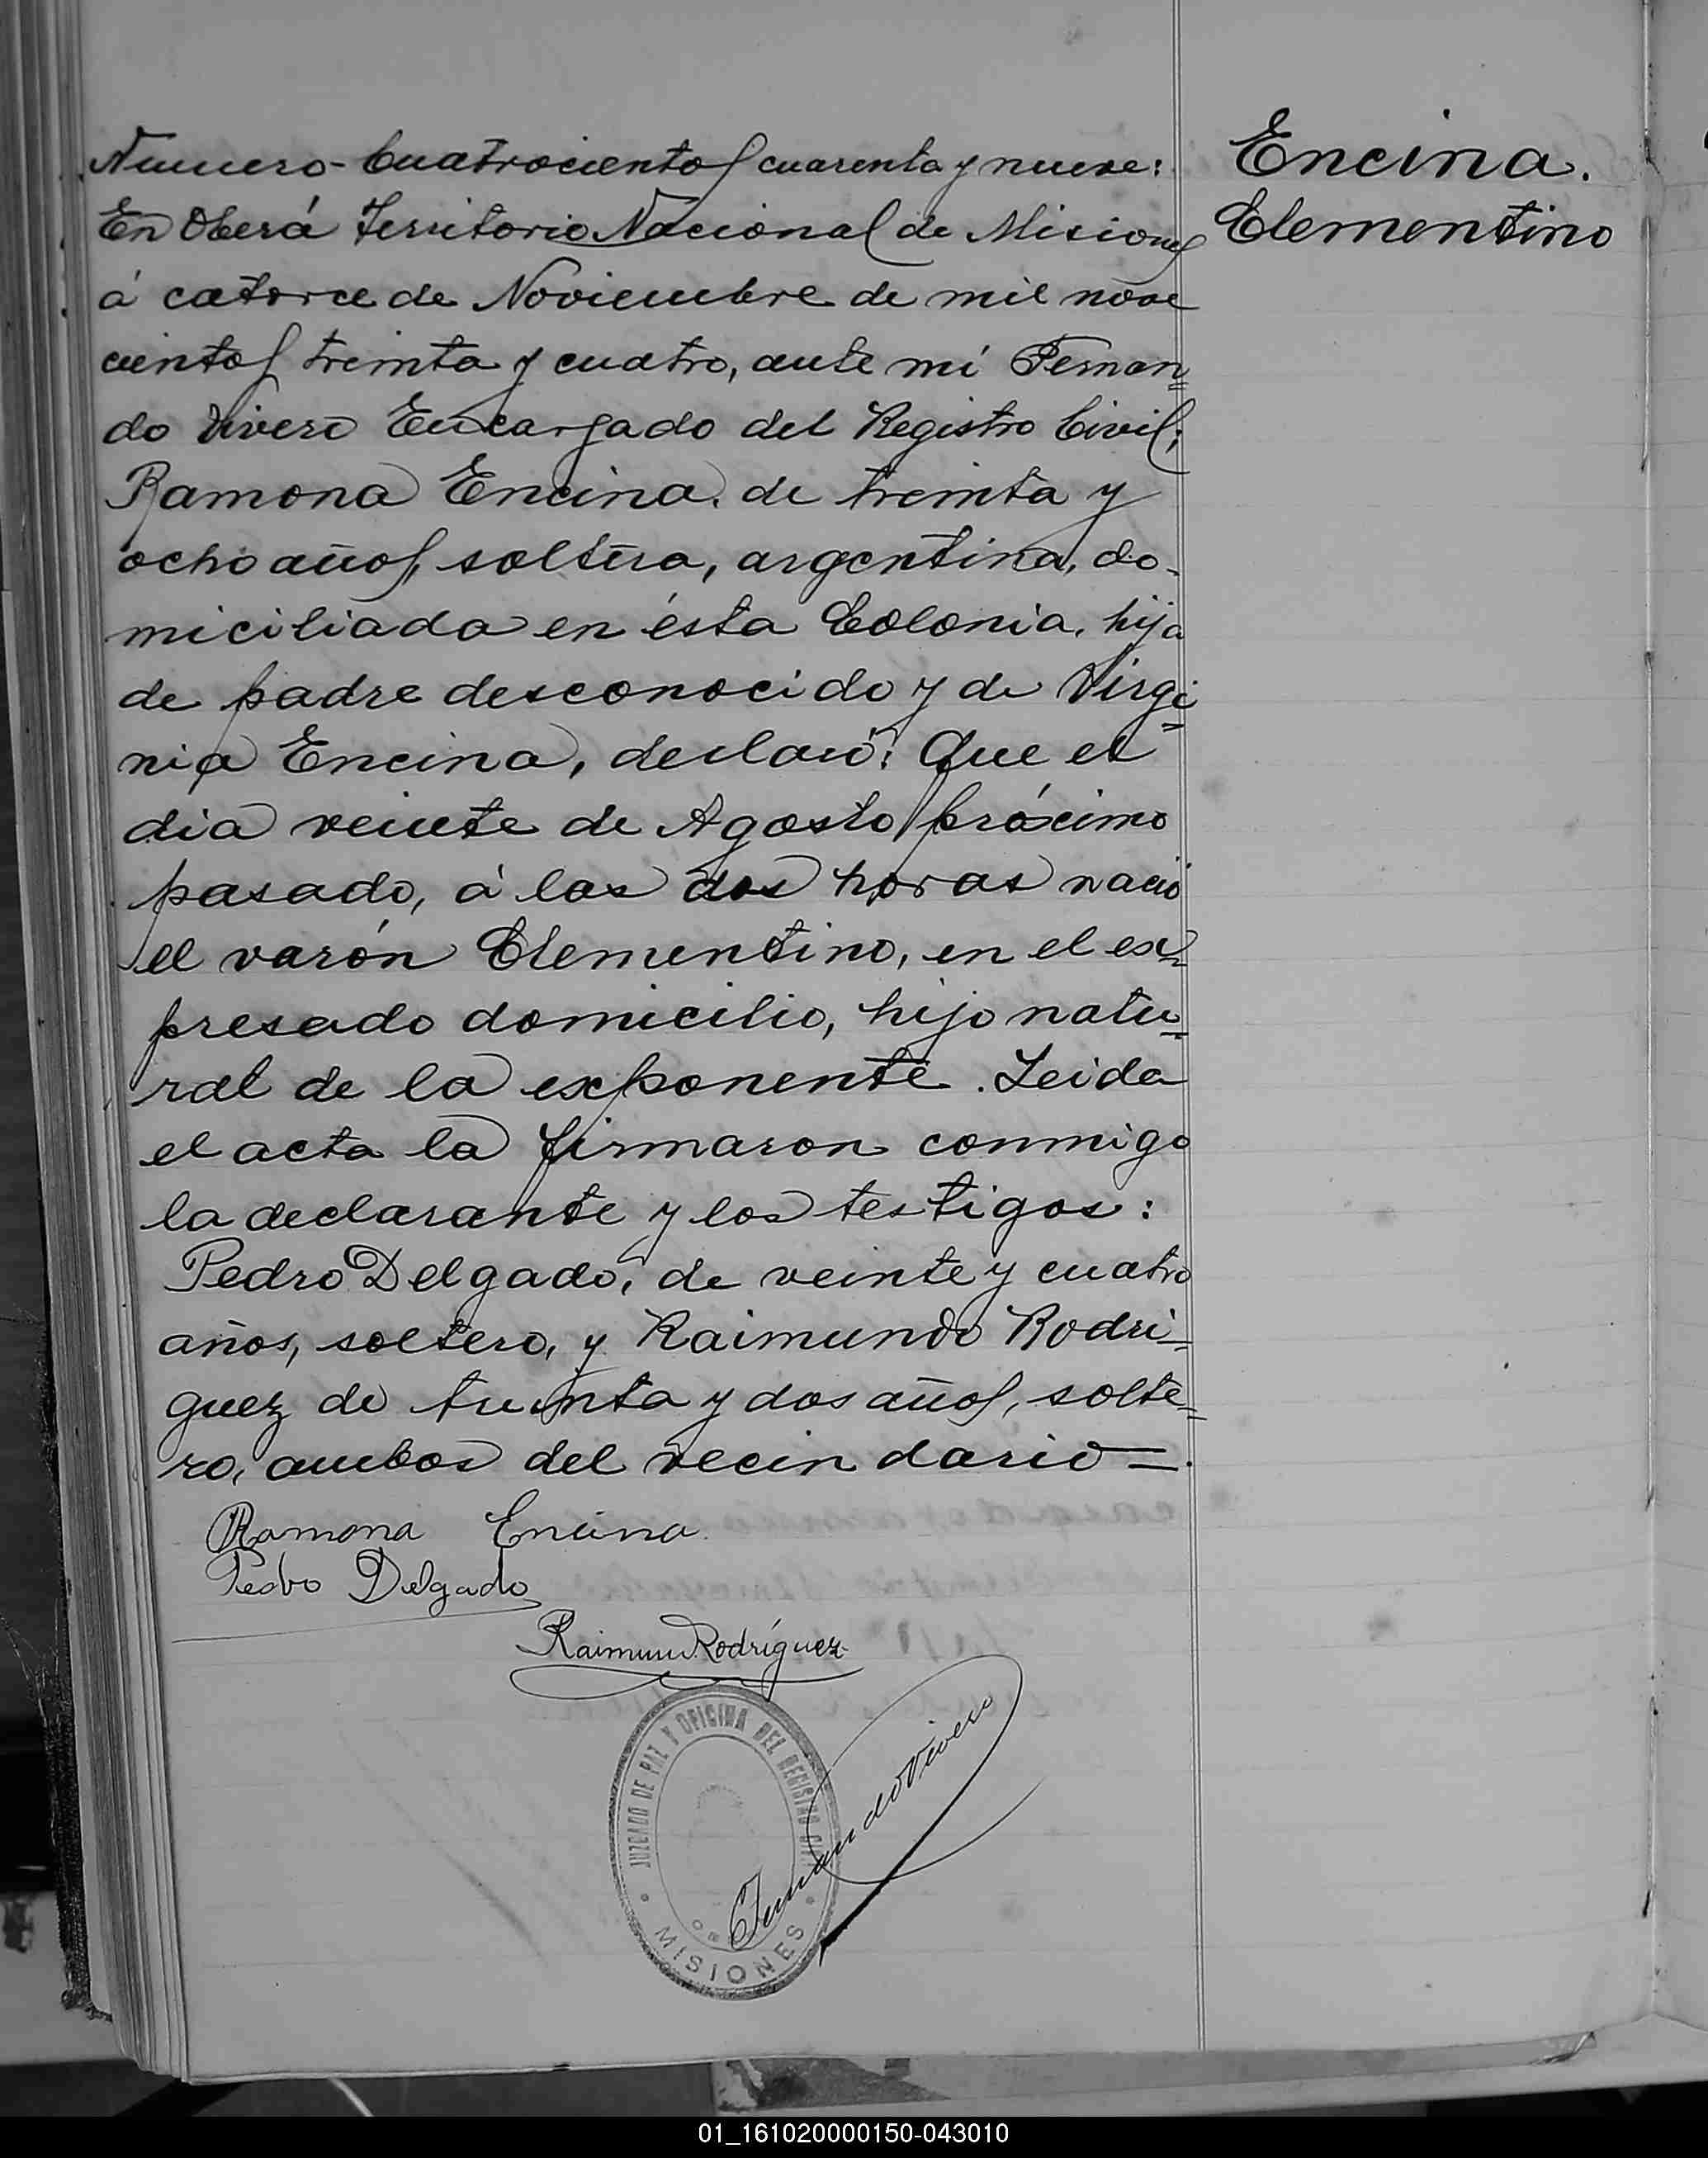 Numero-Cuatrocientos cuarenta y nueve:
En Oberá Territorio Nacional de Misiones
á catorce de Noviembre de mil nove
cientos treinta y cuatro, ante mí Fernan=
do Vivero Encargado del Registro Civil;
Ramona Encina. de treinta y
ocho años, soltera, argentina, do-
miciliada en ésta Colonia, hija
de padre desconocido y de Virgi=
nia Encina, declaró: Que el
dia veinte de Agosto próximo
pasado, á las dos horas nació
el varón Clementino, en el ex=
presado domicilio, hijo natu=
ral de la exponente. Leida
el acta la firmaron conmigo
la declarante y los testigos:
Pedro Delgado, de veinte y cuatro
años, soltero, y Raimundo Rodri=
guez de treinta y dos años, solte=
ro, ambos del vecindario=.
Encina.
Clementino
Ramona Encina
Pedro Delgado
Raimun. Rodríguez
Fernando Vivero
JUZGADO DE PAZ Y OFICINA DEL REGISTRO CIVIL
MISIONES
01_161020000150-043010